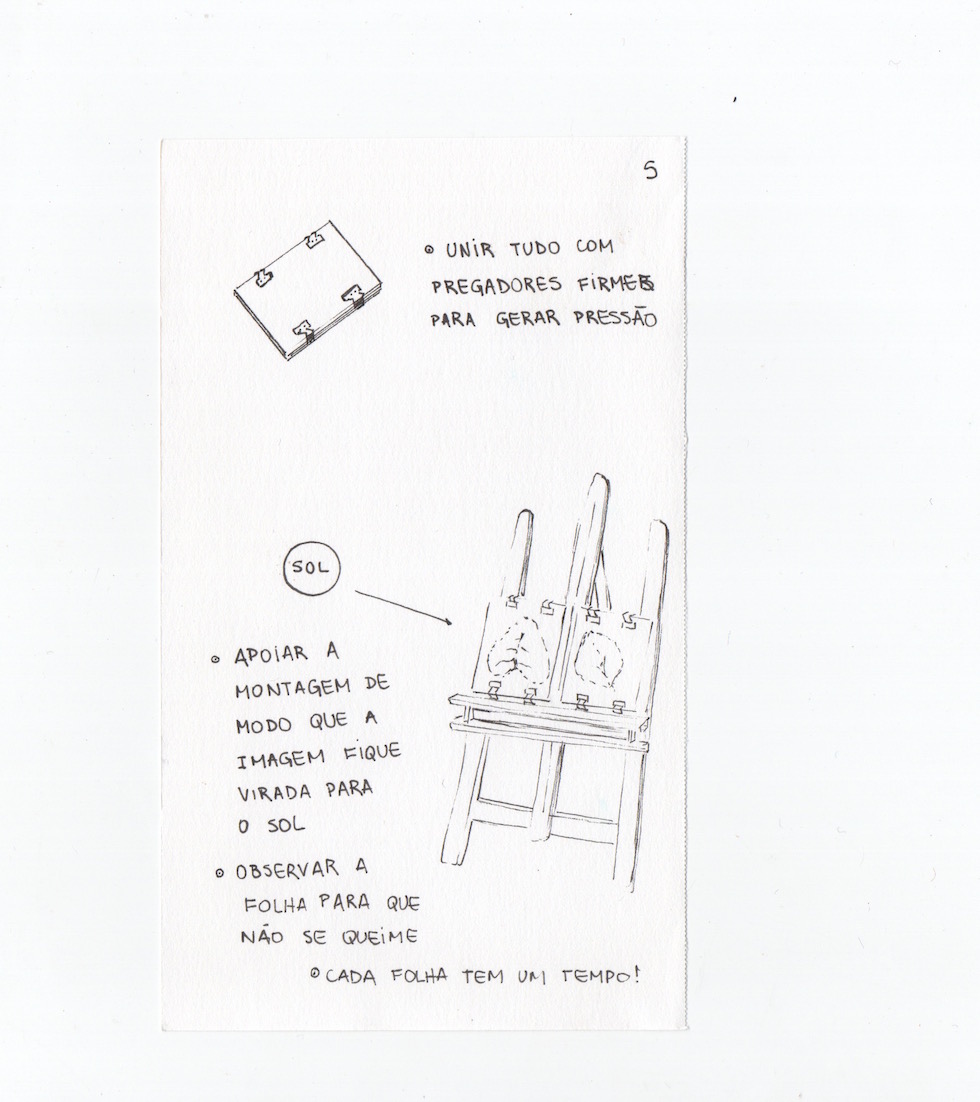 5
• UNIR TUDO COM
PREGADORES FIRMES
PARA GERAR PRESSÃO
SOL
• APOIAR A
MONTAGEM DE
MODO QUE A
IMAGEM FIQUE
VIRADA PARA
O SOL
• OBSERVAR A
FOLHA PARA QUE
NÃO SE QUEIME
• CADA FOLHA TEM UM TEMPO!